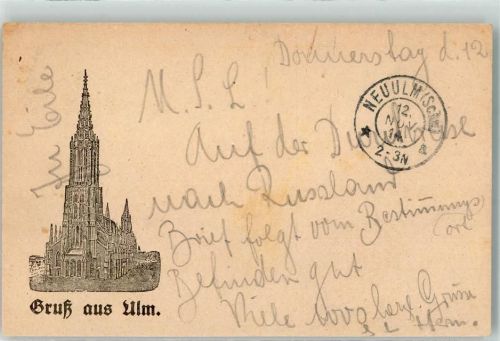 Donnerstag d. 12
In Eile
M. S. L.
NEUULM (Schw)
12.
NOV.
2-3N
Auf der
nach Russland
Brief folgt vom Bestimmungs
ort
Befinden gut
Viele 1000
Gruß aus Ulm.